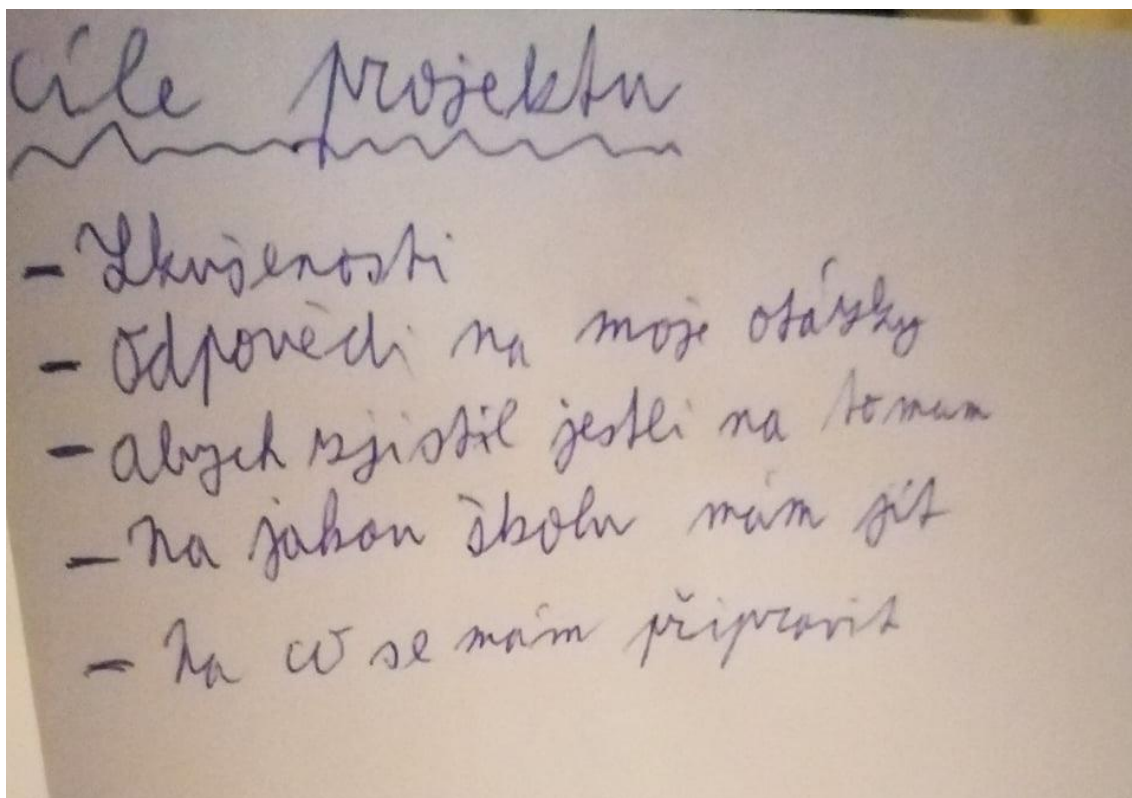 cíle projektu
- Zkušenosti
- Odpovědi na moje otázky
- abych zjistil jestli na to mam
- Na jakou školu mám jít
- Na co se mám připravit